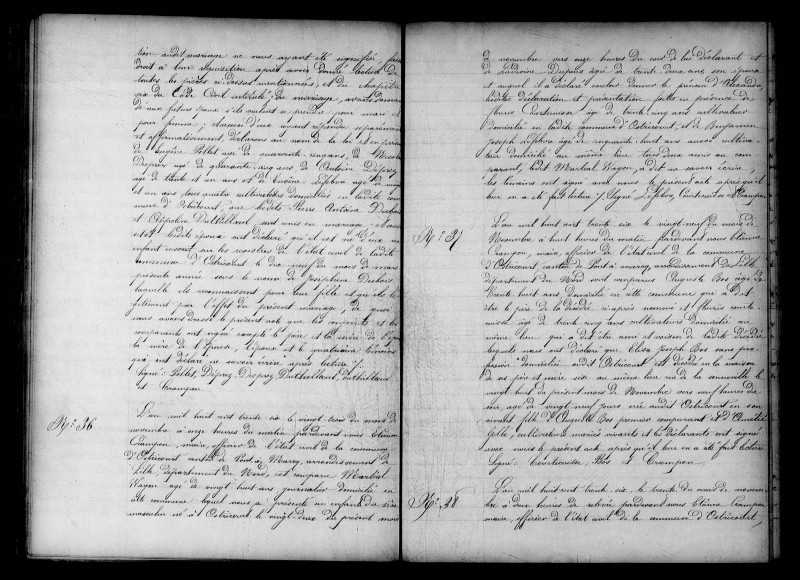 tion audit mariage ne nous ayant été signifiée faisant
droit à leur réquisition après avoir donné lecture de
toutes les pièces ci dessus mentionnées, et du chapitre
six du Code Civil intitulé, du mariage, avons demandé
aux futurs époux s'ils veulent se prendre pour mari et
pour femme; chacun d'eux ayant répondu séparément
et affirmativement, déclarons au nom de la loi
de quarante cinq ans, de
Deprez agé de quarante cinq ans de Antoine Deprez
agé de trente et un ans et de Lefebvre agé de vingt
et un ans, tous quatre cultivateurs domiciliés en ladite com
mune d'Ostricourt, que Pierre Antoine Dubois
et Duthilleul sont unis en mariage
ladite époux ont déclaré qu'il est né d'eux un
enfant inscrit sur les registres de l'état civil de ladite
commune d'Ostricourt le dix neuf du mois de mars
présente année sous le nom de Joséphine Dubois
laquelle ils reconnaissent pour leur fille et qu'ils lé
gitiment par l'effet du présent mariage, de quoi
nous avons dressé le présent acte que les conjoints et les
comparants ont signé excepté le père et la mère de
la mère de l'époux et le
qui ont déclaré ne savoir écrire après lecture
Signé: Pollet, Deprez, Desprez, Duthilleul
et Crampon
N.º 36
L'an mil huit cent trente six le vingt trois du mois de
novembre à onze heures du matin pardevant nous Etienne
Crampon, maire, officier de l'état civil de la commune
d'Ostricourt canton de Pont à Marcq, arrondissement de
Lille, département du Nord, est comparu Martial
Wagon agé de vingt huit ans journalier domicilié en
cette commune lequel nous a présenté un enfant du sexe
masculin né à Ostricourt le vingt deux du présent mois
de novembre vers onze heures du soir de lui déclarant et
de Dupuis agé de trente deux ans son épouse
et auquel il a déclaré vouloir donner le prénom d'
lesdites déclaration et présentation faites en présence de
fleuris Courtecuisse agé de trente cinq ans cultivateur
domicilié en ladite commune d'Ostricourt, et de Benjamin
Joseph Lefebvre agé de cinquante huit ans aussi cultiva
teur domicilié au même lieu tous deux amis au com
parant, ledit Martial Wagon, a dit ne savoir écrire,
les témoins ont signé avec nous le présent acte après qu'il
leur en a été fait lecture /. Signé Lefebvre, Courtecuisse et Crampon
N.º 37
L'an mil huit cent trente six le vingt neuf du mois de
Novembre à huit heures du matin pardevant nous Etienne
Crampon, maire, officier de l'état civil de la commune
d'Ostricourt canton de Pont à marcq, arrondissement de Lille,
département du Nord sont comparus Auguste Bos agé de
trente huit ans, domicilié en cette commune qui a dit
être le père de la décédée ci après nommée et fleuris courte
cuisse agé de trente cinq ans cultivateurs domicilié au
même lieu qui a dit être ami et voisin de ladite décédée
lesquels nous ont déclaré que Elisa Joseph Bos sans pro
fession domiciliée audit Ostricourt est décédée en la maison
de ses père et mère sise au même lieu rue de la le
vingt huit du présent mois de Novembre vers neuf heures du
soir agée de vingt neuf jours née audit Ostricourt en son
vivant fille d'Auguste Bos premier comparant et d'
cultivateurs mariés vivants et les déclarants ont signé
avec nous le présent acte, après qu'il leur en a été fait lecture
Signé: Courtecuisse, Bos et Crampon
N.º 38
L'an mil huit cent trente six, le trente du mois de novem
bre à deux heures de relevée pardevant nous Etienne Crampon
maire, officier de l'état civil de la commune d'Ostricourt,